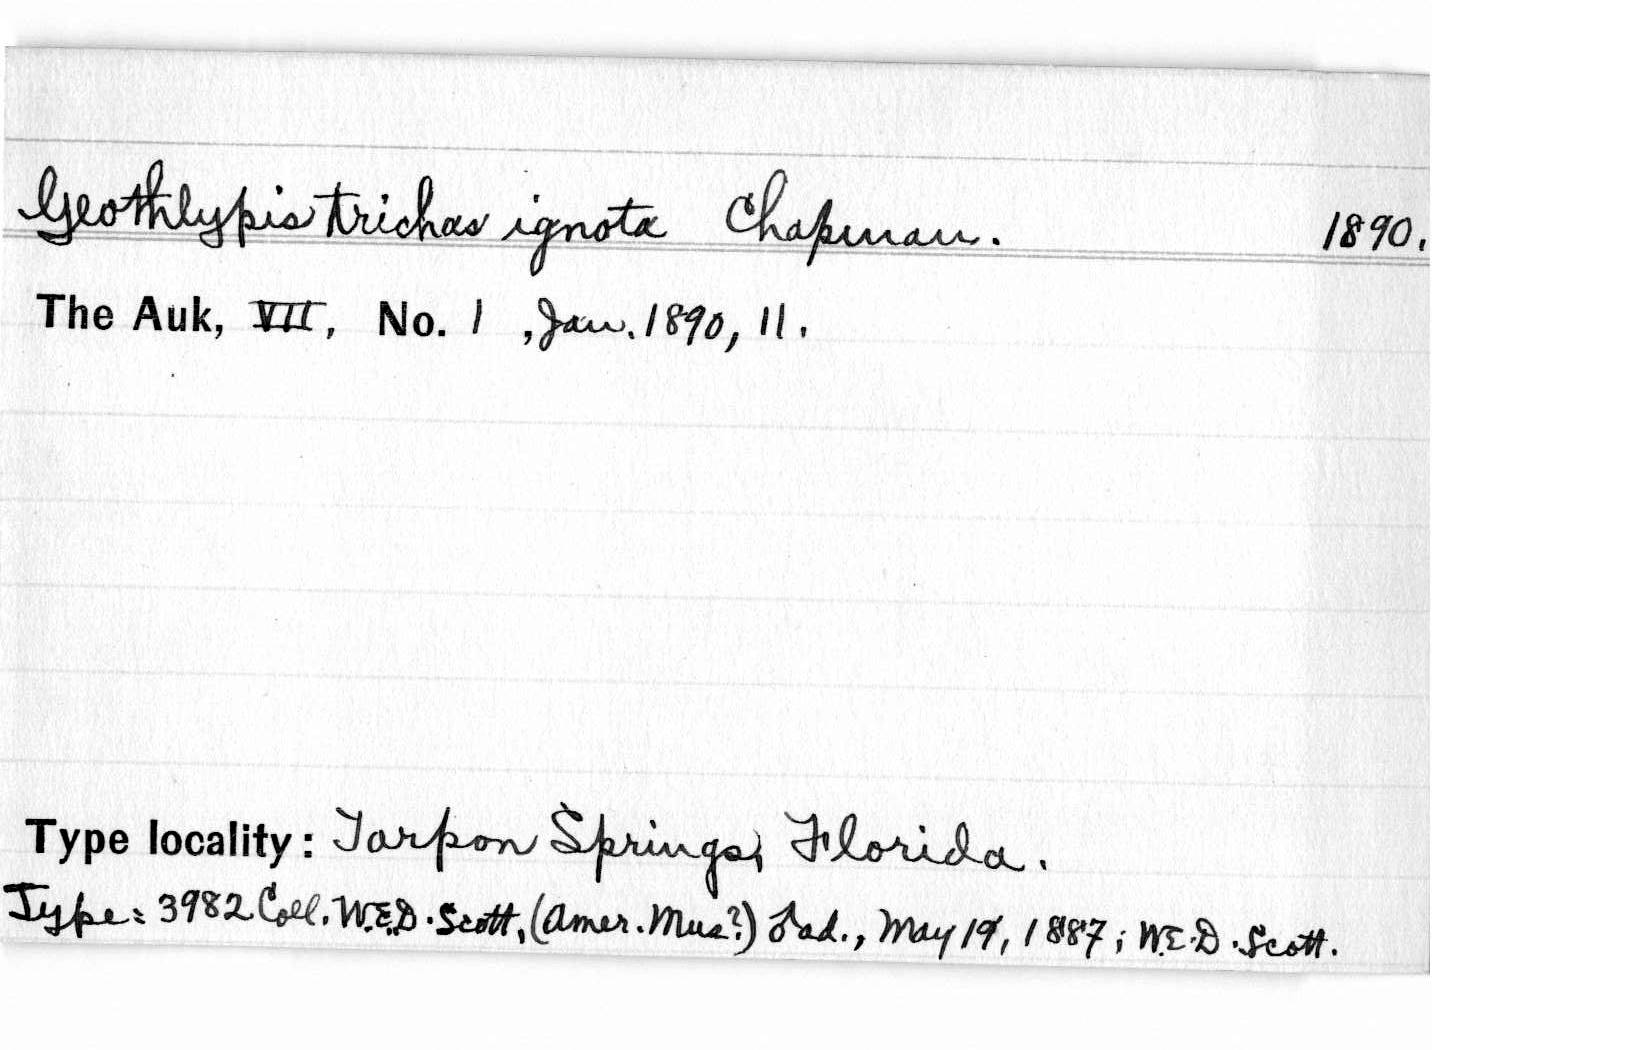 Geothlypis trichas ignota Chapman. 1890.
The Auk, VII, No. 1 , Jan. 1890, 11.
Type locality: Tarpon Springs, Florida.
Type: 3982 Coll. W.E.D. Scott, (Amer. Mus?) ♂ ad., May 19, 1887; W.E.D. Scott.